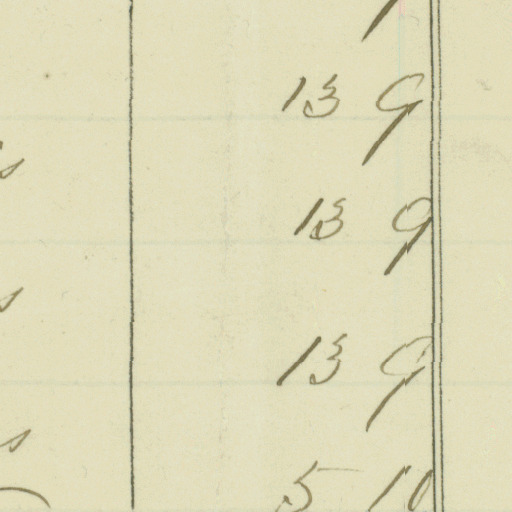 13 9
s
13 9
s
13 9
s
5 10